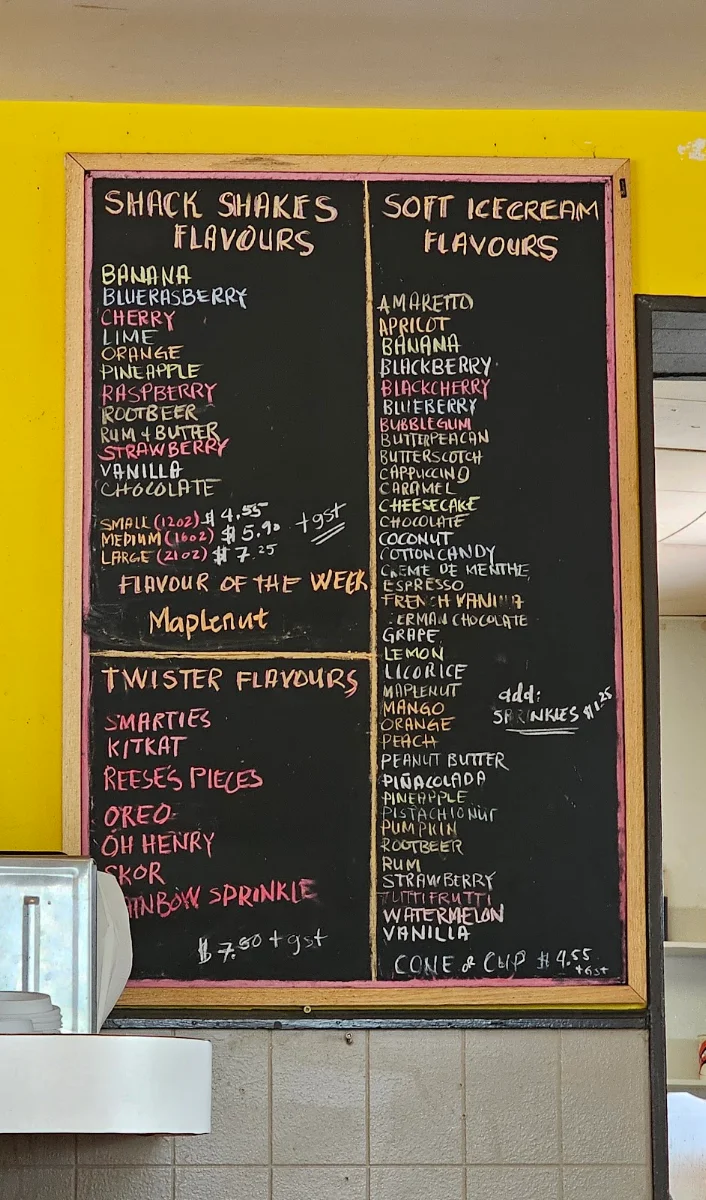 SHACK SHAKES
FLAVOURS
BANANA
BLUERASBERRY
CHERRY
LIME
ORANGE
PINEAPPLE
RASPBERRY
ROOTBEER
RUM & BUTTER
STRAWBERRY
VANILLA
CHOCOLATE
SMALL (12oz) $ 4.55
MEDIUM (16oz) $ 5.90 +gst
LARGE (21oz) $ 7.25
FLAVOUR OF THE WEEK
Maplenut
TWISTER FLAVOURS
SMARTIES
KITKAT
REESE'S PIECES
OREO
OH HENRY
SKOR
AINBOW SPRINKLE
$ 7.80 + gst
SOFT ICECREAM
FLAVOURS
AMARETTO
APRICOT
BANANA
BLACKBERRY
BLACKCHERRY
BLUEBERRY
BUBBLEGUM
BUTTERPEACAN
BUTTERSCOTCH
CAPPUCCINO
CARAMEL
CHEESECAKE
CHOCOLATE
COCONUT
COTTONCANDY
CREME DE MENTHE
ESPRESSO
FRENCH VANILLA
ERMAN CHOCOLATE
GRAPE
LEMON
LICORICE
MAPLENUT
MANGO
ORANGE
PEACH
PEANUT BUTTER
PIÑACOLADA
PINEAPPLE
PISTACHIONUT
PUMPKIN
ROOTBEER
RUM
STRAWBERRY
TUTTIFRUTTI
WATERMELON
VANILLA
add:
SPRINKLES $1.25
CONE & CUP $4.55
+GST